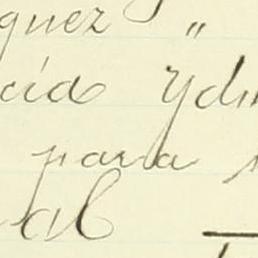 quez „
cia Yd
para
al